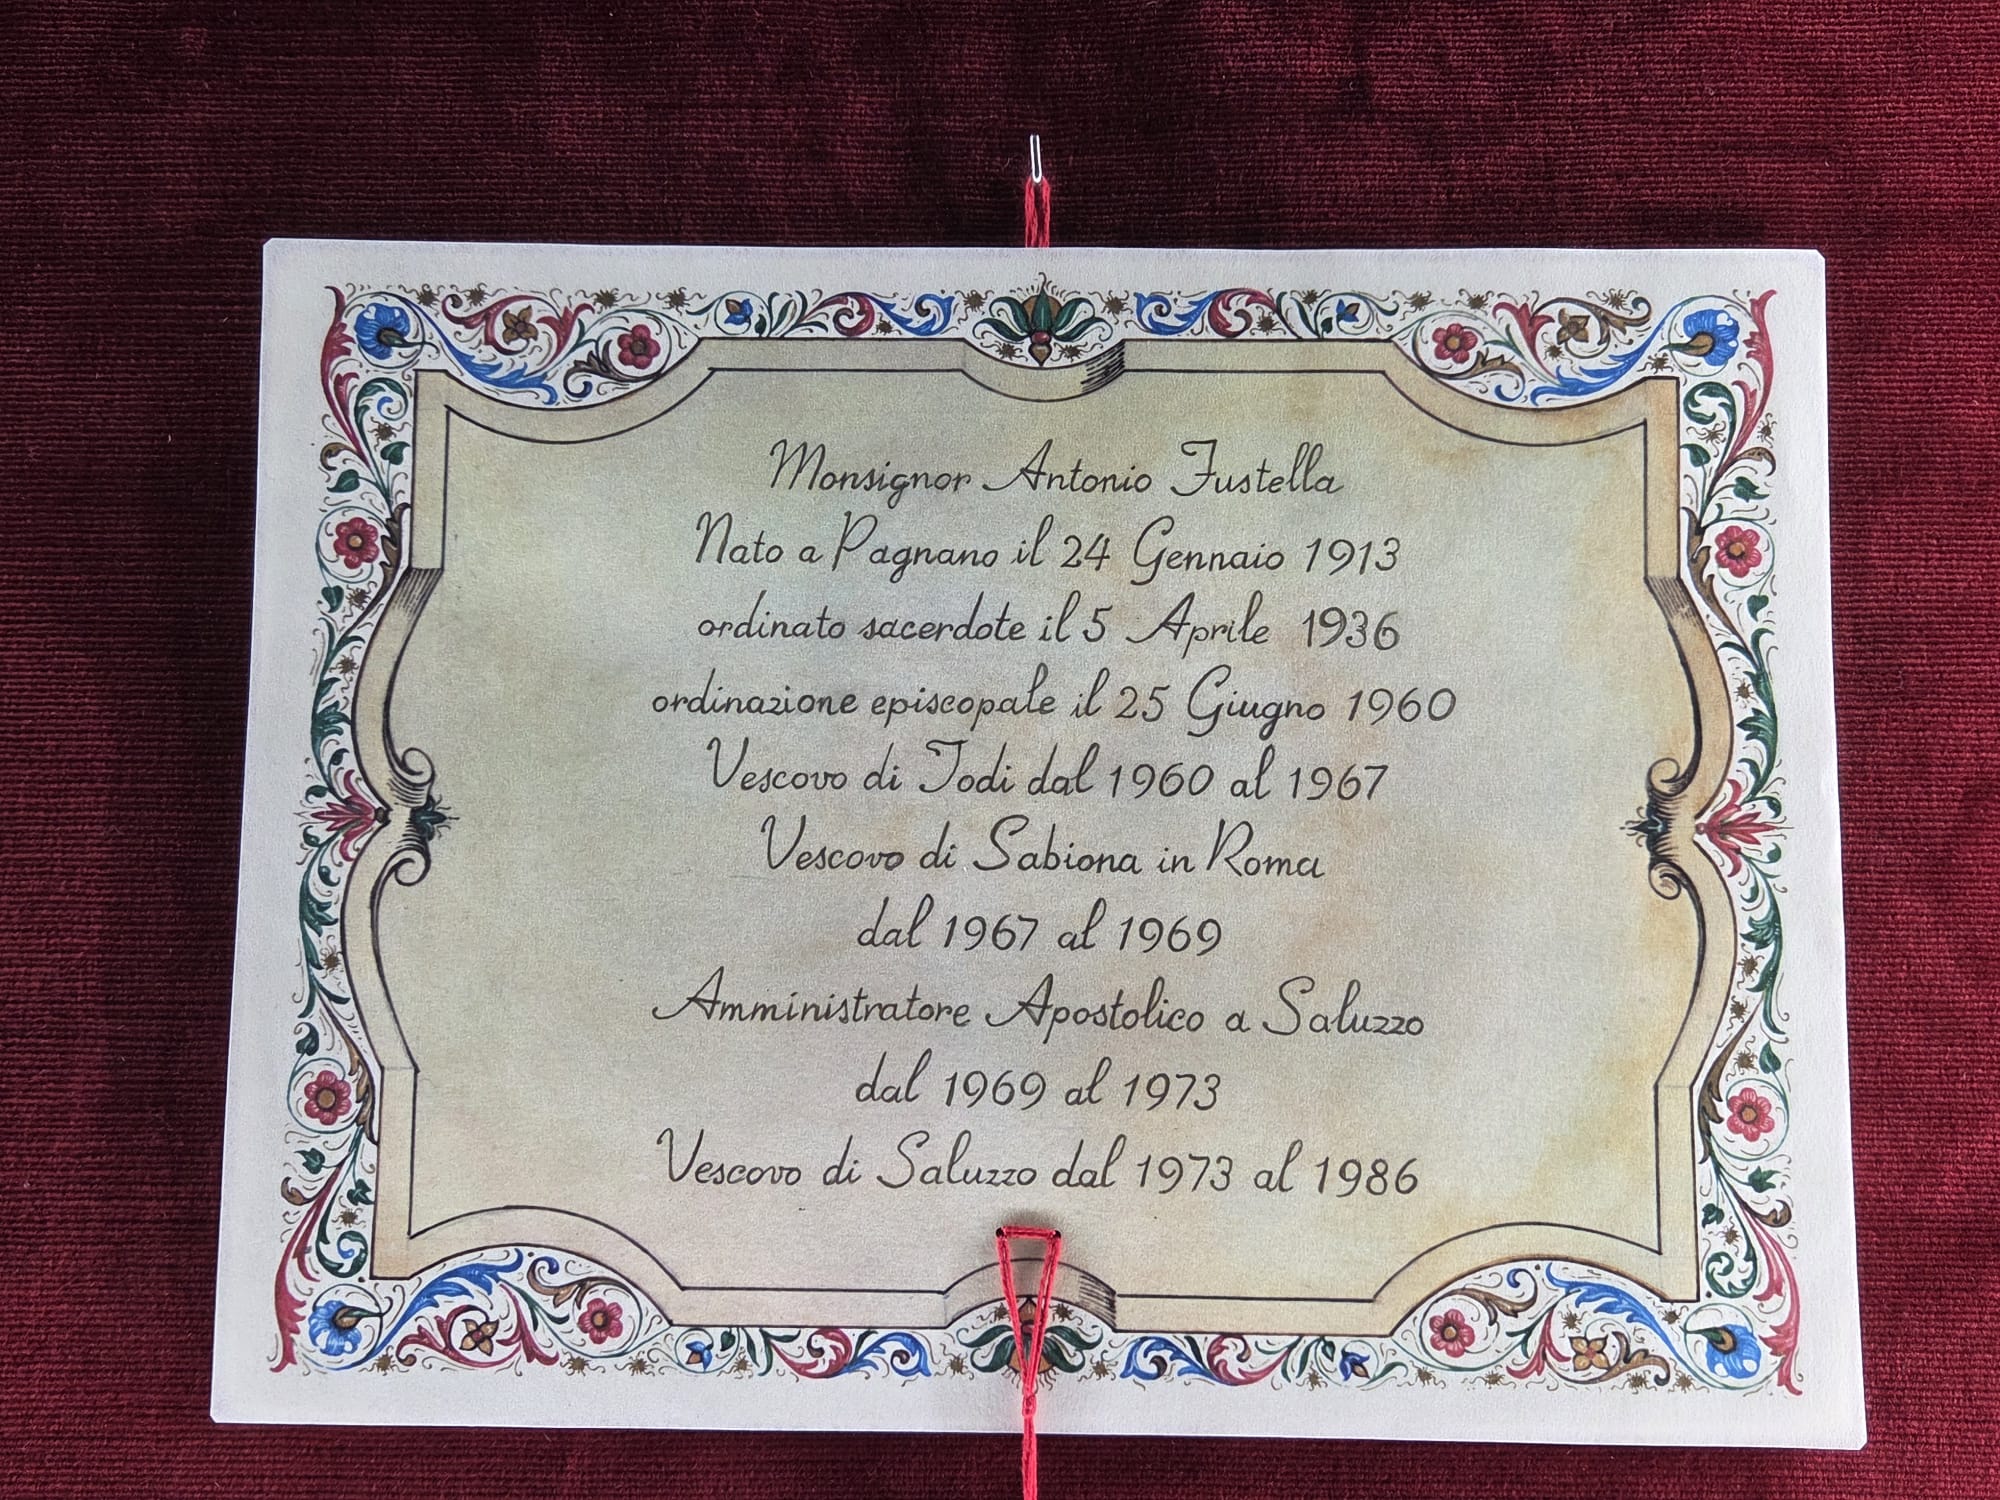 Monsignor Antonio Fustella
Nato a Pagnano il 24 Gennaio 1913
ordinato sacerdote il 5 Aprile 1936
ordinazione episcopale il 25 Giugno 1960
Vescovo di Todi dal 1960 al 1967
Vescovo di Sabiona in Roma
dal 1967 al 1969
Amministratore Apostolico a Saluzzo
dal 1969 al 1973
Vescovo di Saluzzo dal 1973 al 1986